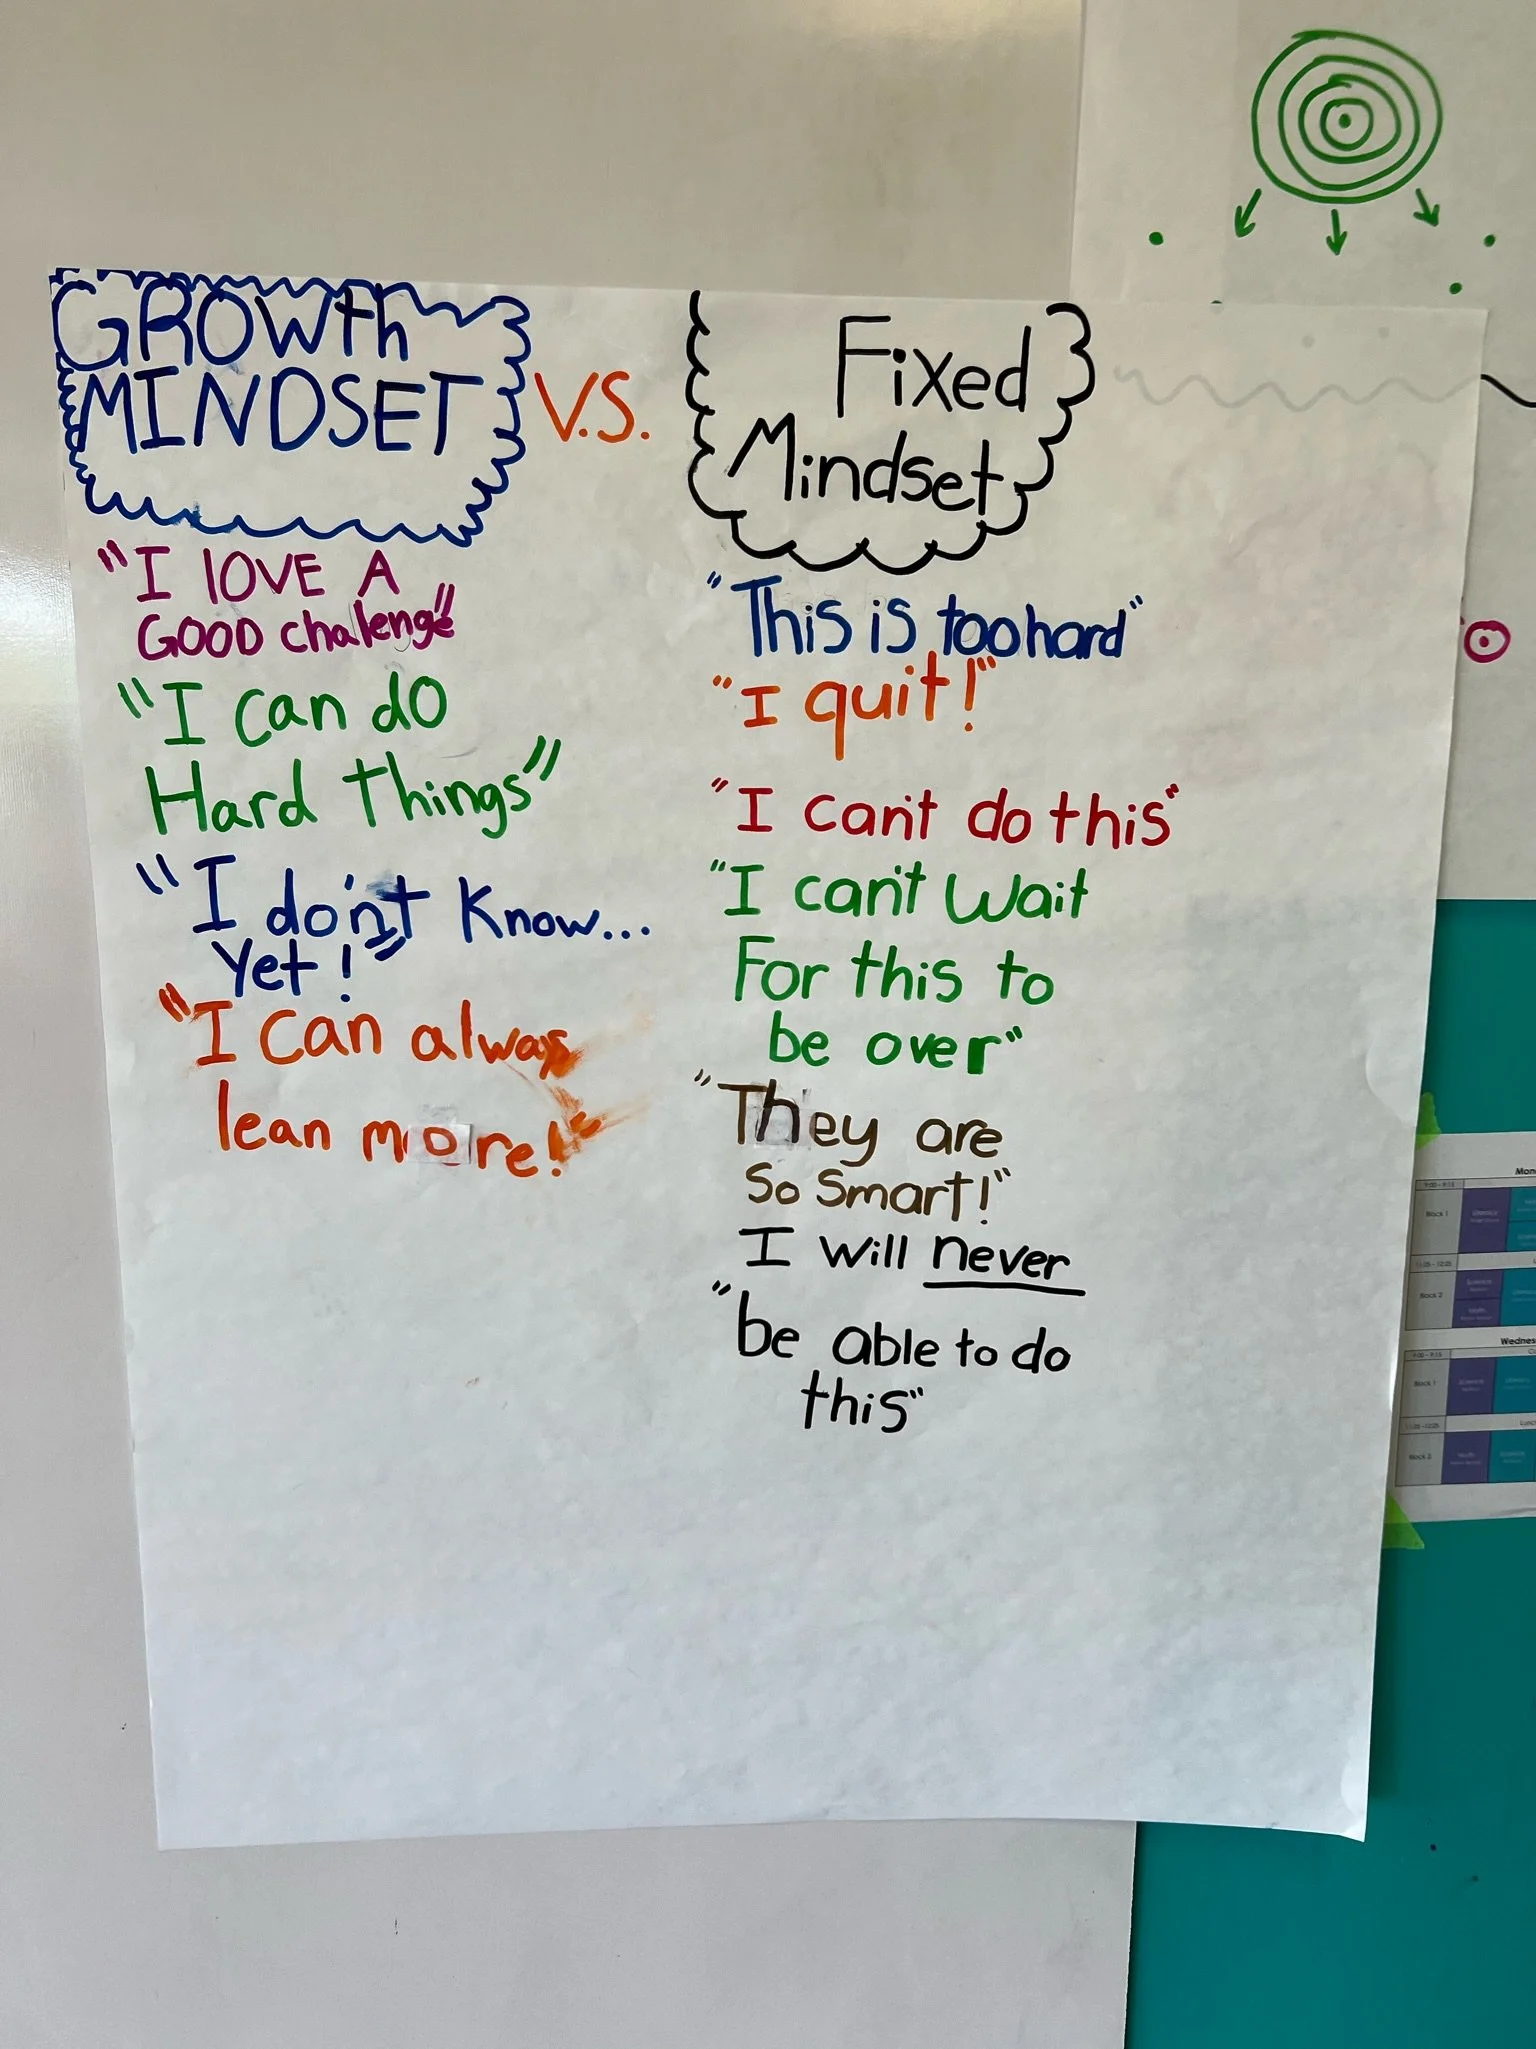 GROWth
MINDSET
V.S.
"I lOVE A
GOOD chalenge"
"I can dO
Hard things"
"I don't Know...
Yet!"
"I can always
lean more!"
Fixed
Mindset
"This is too hard"
"I quit!"
"I can't do this"
"I can't Wait
For this to
be over"
"They are
So Smart!"
I will never
"be able to do
this"
Block 1
Block 2
Block 1
Block 2